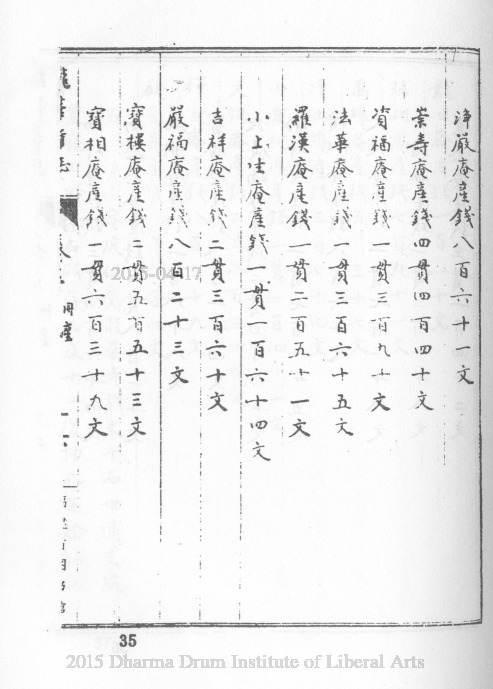 浄嚴庵產錢八百六十一文
崇壽庵產錢四貫四百四十文
資福庵產錢一貫三百九十文
法華庵產錢一貫三百六十五文
羅漢庵產錢一貫二百五十一文
小上生庵產錢二貫一百六十四文
吉祥庵產錢二貫三百六十文
嚴福庵產錢八百二十三文
寶樓庵產錢二貫五百五十三文
寶相庵產錢一貫六百三十九文
寺志 卷 田產
35
2015-04-17
2015 Dharma Drum Institute of Liberal Arts